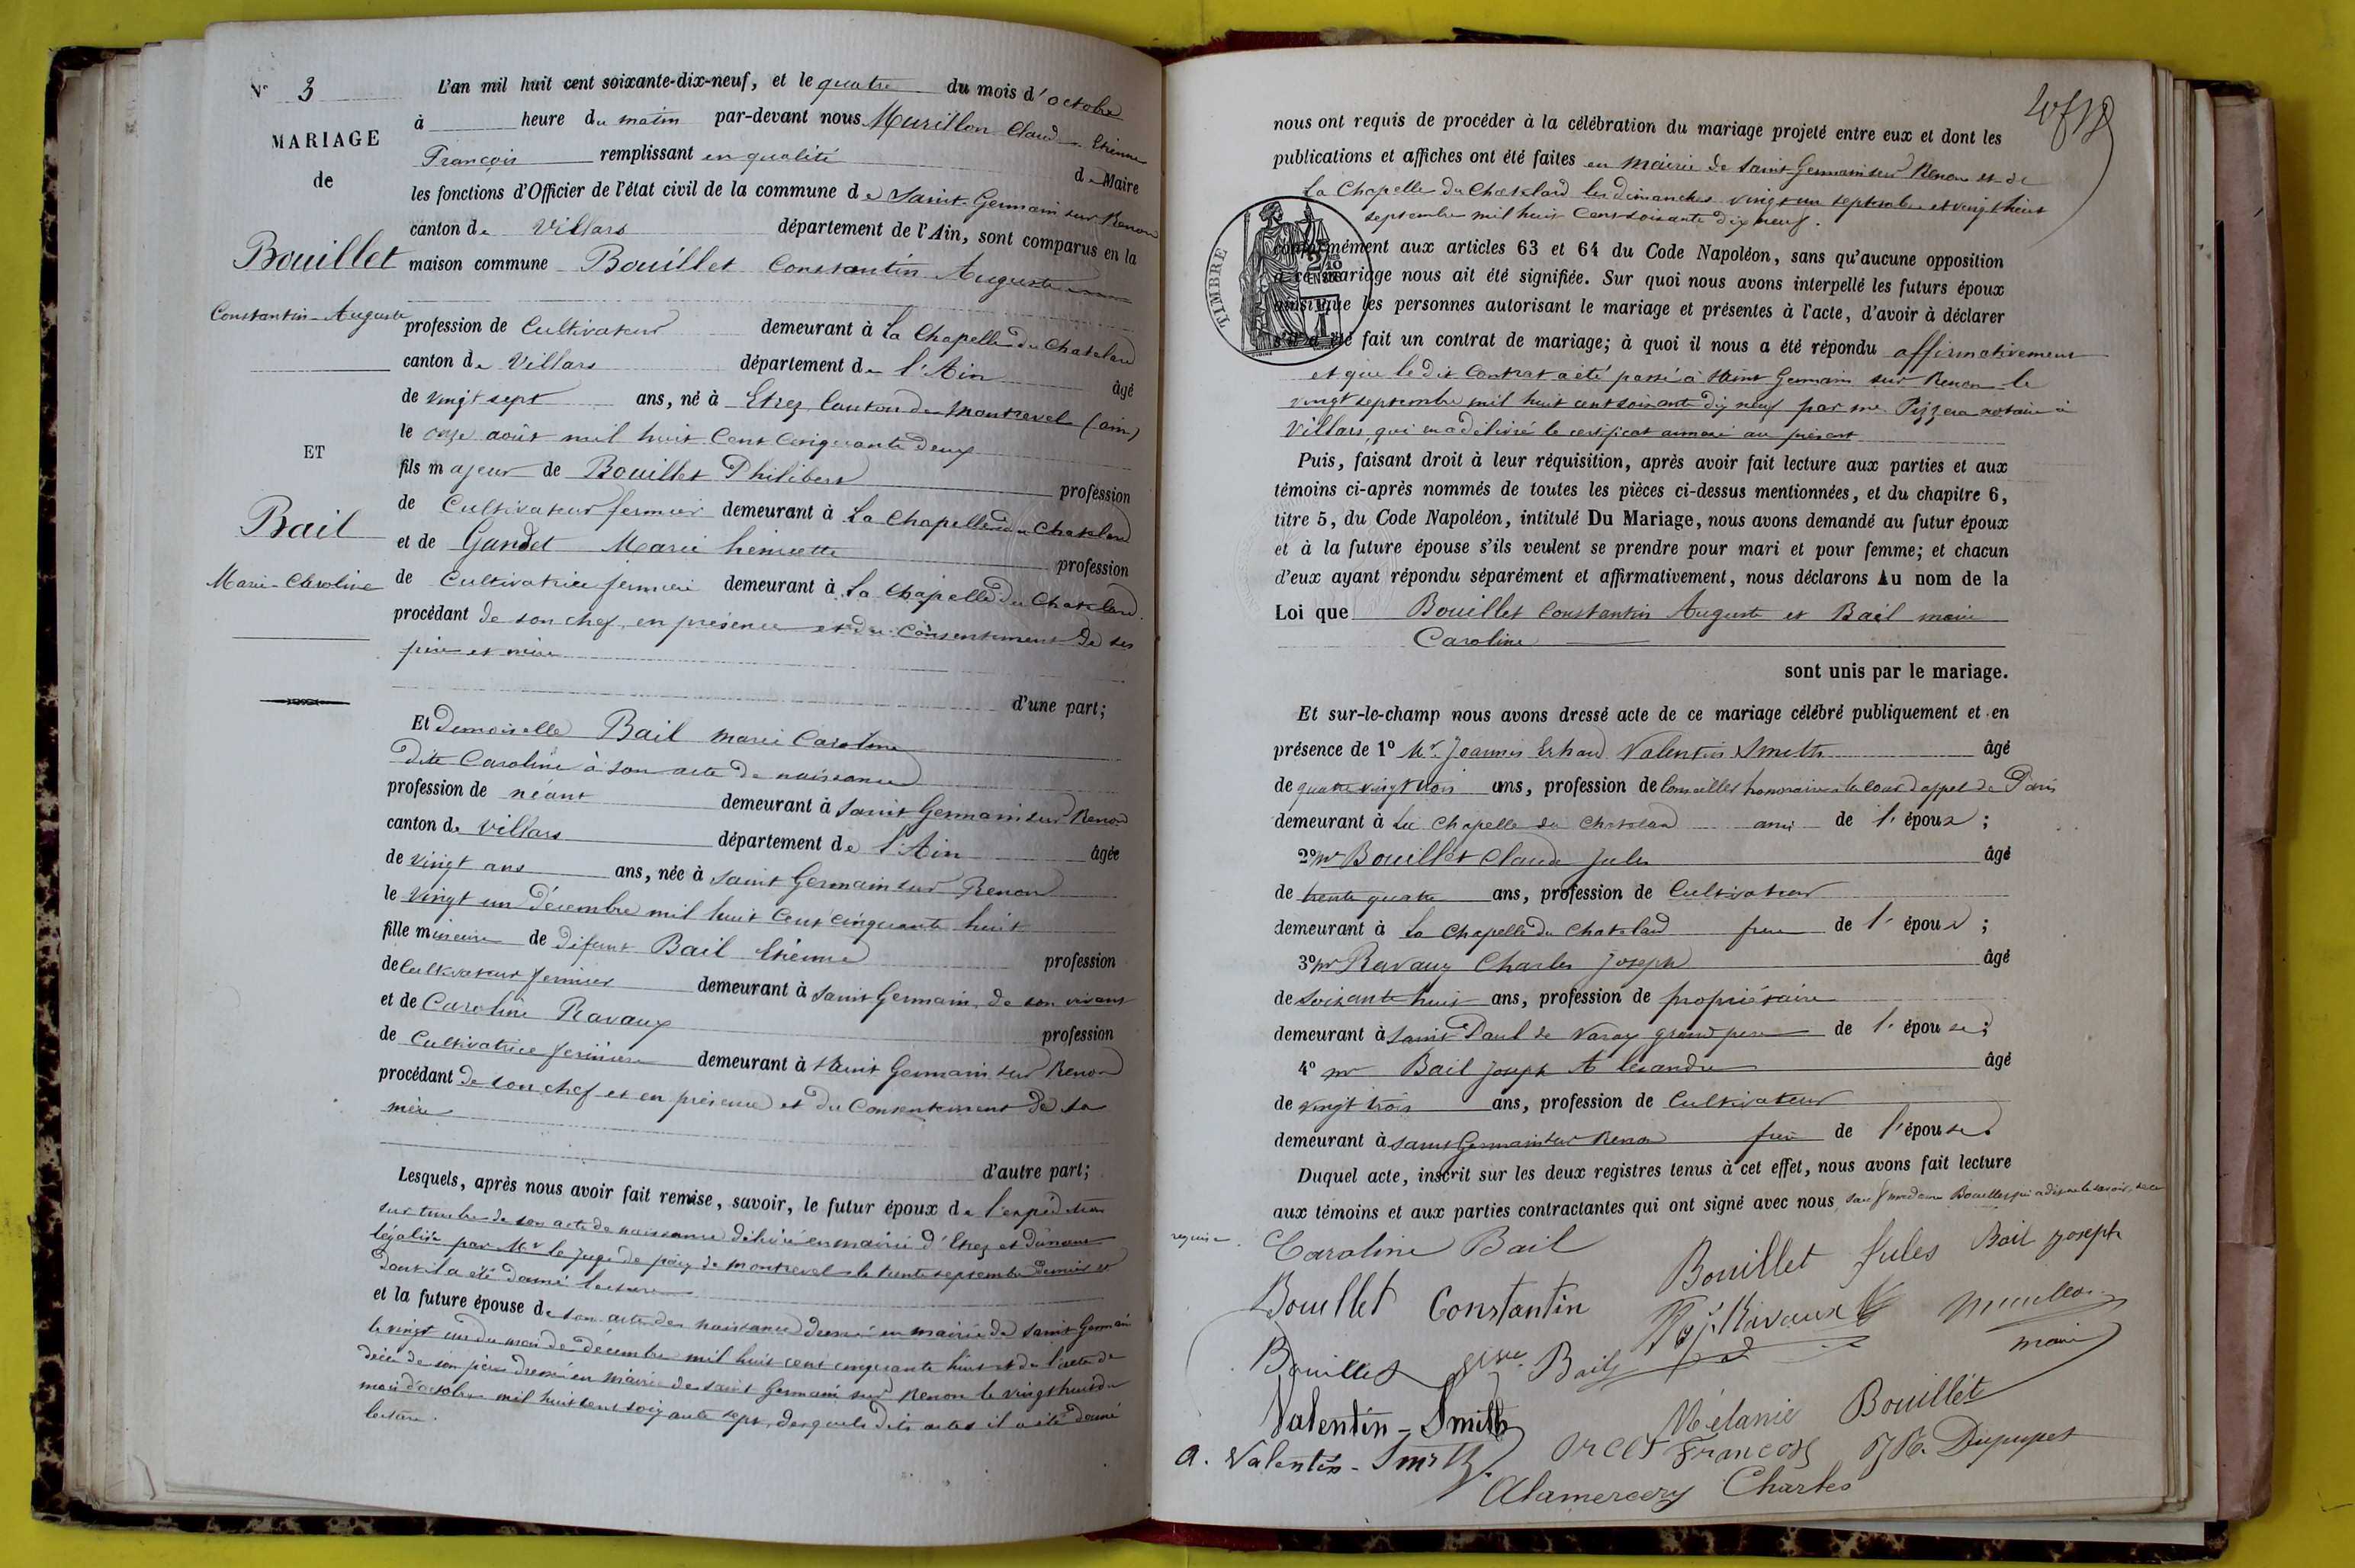 Nº 3
MARIAGE
de
Bouillet
Constantin-Auguste
ET
Bail
Marie-Caroline
L'an mil huit cent soixante-dix-neuf, et le quatre du mois d'octobre
à heure du matin par-devant nous Murillon Claude Etienne
François remplissant en qualité de Maire
les fonctions d'Officier de l'état civil de la commune de Saint Germain sur Renon
canton de Villars département de l'Ain, sont comparus en la
maison commune Bouillet Constantin Auguste
profession de Cultivateur demeurant à La Chapelle du Chatelard
canton de Villars département de l'Ain âgé
de vingt sept ans, né à Etrez Canton de Montrevel (ain)
le onze août mil huit Cent Cinquante deux
fils majeur de Bouillet Philibert profession
de Cultivateur fermier demeurant à La Chapelle du Chatelard
et de Gandet Marie henriette profession
de Cultivatrice fermière demeurant à La Chapelle du Chatelard
procédant de son chef, en présence et du Consentement de ses
père et mère
d'une part;
Et demoiselle Bail marie Caroline
dite Caroline à son acte de naissance
profession de néant demeurant à Saint Germain sur Renon
canton de Villars département de l'Ain âgée
de vingt ans ans, née à Saint Germain sur Renon
le vingt un Décembre mil huit Cent cinquante huit
fille mineure de défunt Bail Etienne profession
de Cultivateur fermier demeurant à Saint Germain, de son vivant
et de Caroline Ravaux profession
de Cultivatrice fermière demeurant à Saint Germain sur Renon
procédant de son chef et en présence et du Consentement de sa
mère
d'autre part;
Lesquels, après nous avoir fait remise, savoir, le futur époux de l'expédition
sur timbre de son acte de naissance délivré en mairie d'Etrez et dûment
légalisé par Mr le juge de paix de Montrevel le trente septembre dernier et
dont il a été donné lecture
et la future épouse de son acte de naissance dressé en mairie de Saint Germain
le vingt un du mois de décembre mil huit cent cinquante huit et de l'acte de
décès de son père dressé en mairie de Saint Germain sur Renon le vingt huit du
mois d'octobre mil huit cent soixante sept, desquels dits actes il a été donné
lecture.
nous ont requis de procéder à la célébration du mariage projeté entre eux et dont les
publications et affiches ont été faites en mairie de Saint Germain sur Renon et de
La Chapelle du Chatelard les dimanches vingt un septembre et vingt huit
septembre mil huit Cent soixante dix neuf.
TIMBRE
conformément aux articles 63 et 64 du Code Napoléon, sans qu'aucune opposition
à ce mariage nous ait été signifiée. Sur quoi nous avons interpellé les futurs époux
ainsi que les personnes autorisant le mariage et présentes à l'acte, d'avoir à déclarer
s'il a été fait un contrat de mariage; à quoi il nous a été répondu affirmativement
et que le dit Contrat a été passé à Saint Germain sur Renon le
vingt septembre mil huit cent soixante dix neuf par me Pizzera notaire à
Villars, qui en a délivré le certificat annexé au présent
Puis, faisant droit à leur réquisition, après avoir fait lecture aux parties et aux
témoins ci-après nommés de toutes les pièces ci-dessus mentionnées, et du chapitre 6,
titre 5, du Code Napoléon, intitulé Du Mariage, nous avons demandé au futur époux
et à la future épouse s'ils veulent se prendre pour mari et pour femme; et chacun
d'eux ayant répondu séparément et affirmativement, nous déclarons Au nom de la
Loi que Bouillet Constantin Auguste et Bail marie
Caroline
sont unis par le mariage.
Et sur-le-champ nous avons dressé acte de ce mariage célébré publiquement et en
présence de 1º Mr. Joannès Erhard Valentin Smith âgé
de quatre vingt trois ans, profession de Conseiller honoraire à la cour d'appel de Paris
demeurant à La Chapelle du Chatelard ami de l'époux;
2º mr Bouillet Claude Jules âgé
de trente quatre ans, profession de Cultivateur
demeurant à La Chapelle du Chatelard frère de l'époux;
3º mr Ravaux Charles Joseph âgé
de Soixante huit ans, profession de propriétaire
demeurant à Saint Paul de Varax grand père de l'épouse;
4º mr Bail Joseph Alexandre âgé
de vingt trois ans, profession de Cultivateur
demeurant à Saint Germain sur Renon frère de l'épouse.
Duquel acte, inscrit sur les deux registres tenus à cet effet, nous avons fait lecture
aux témoins et aux parties contractantes qui ont signé avec nous, sauf madame Bouillet qui a déclaré ne le savoir, de ce
requise.
Caroline Bail Bouillet Jules Bail Joseph
Bouillet Constantin Ravaux Murillon
maire
Bouillet Bail
Valentin-Smith Mélanie Bouillet
a. Valentin-Smith Orcet François Dupupet
Alamercery Charles